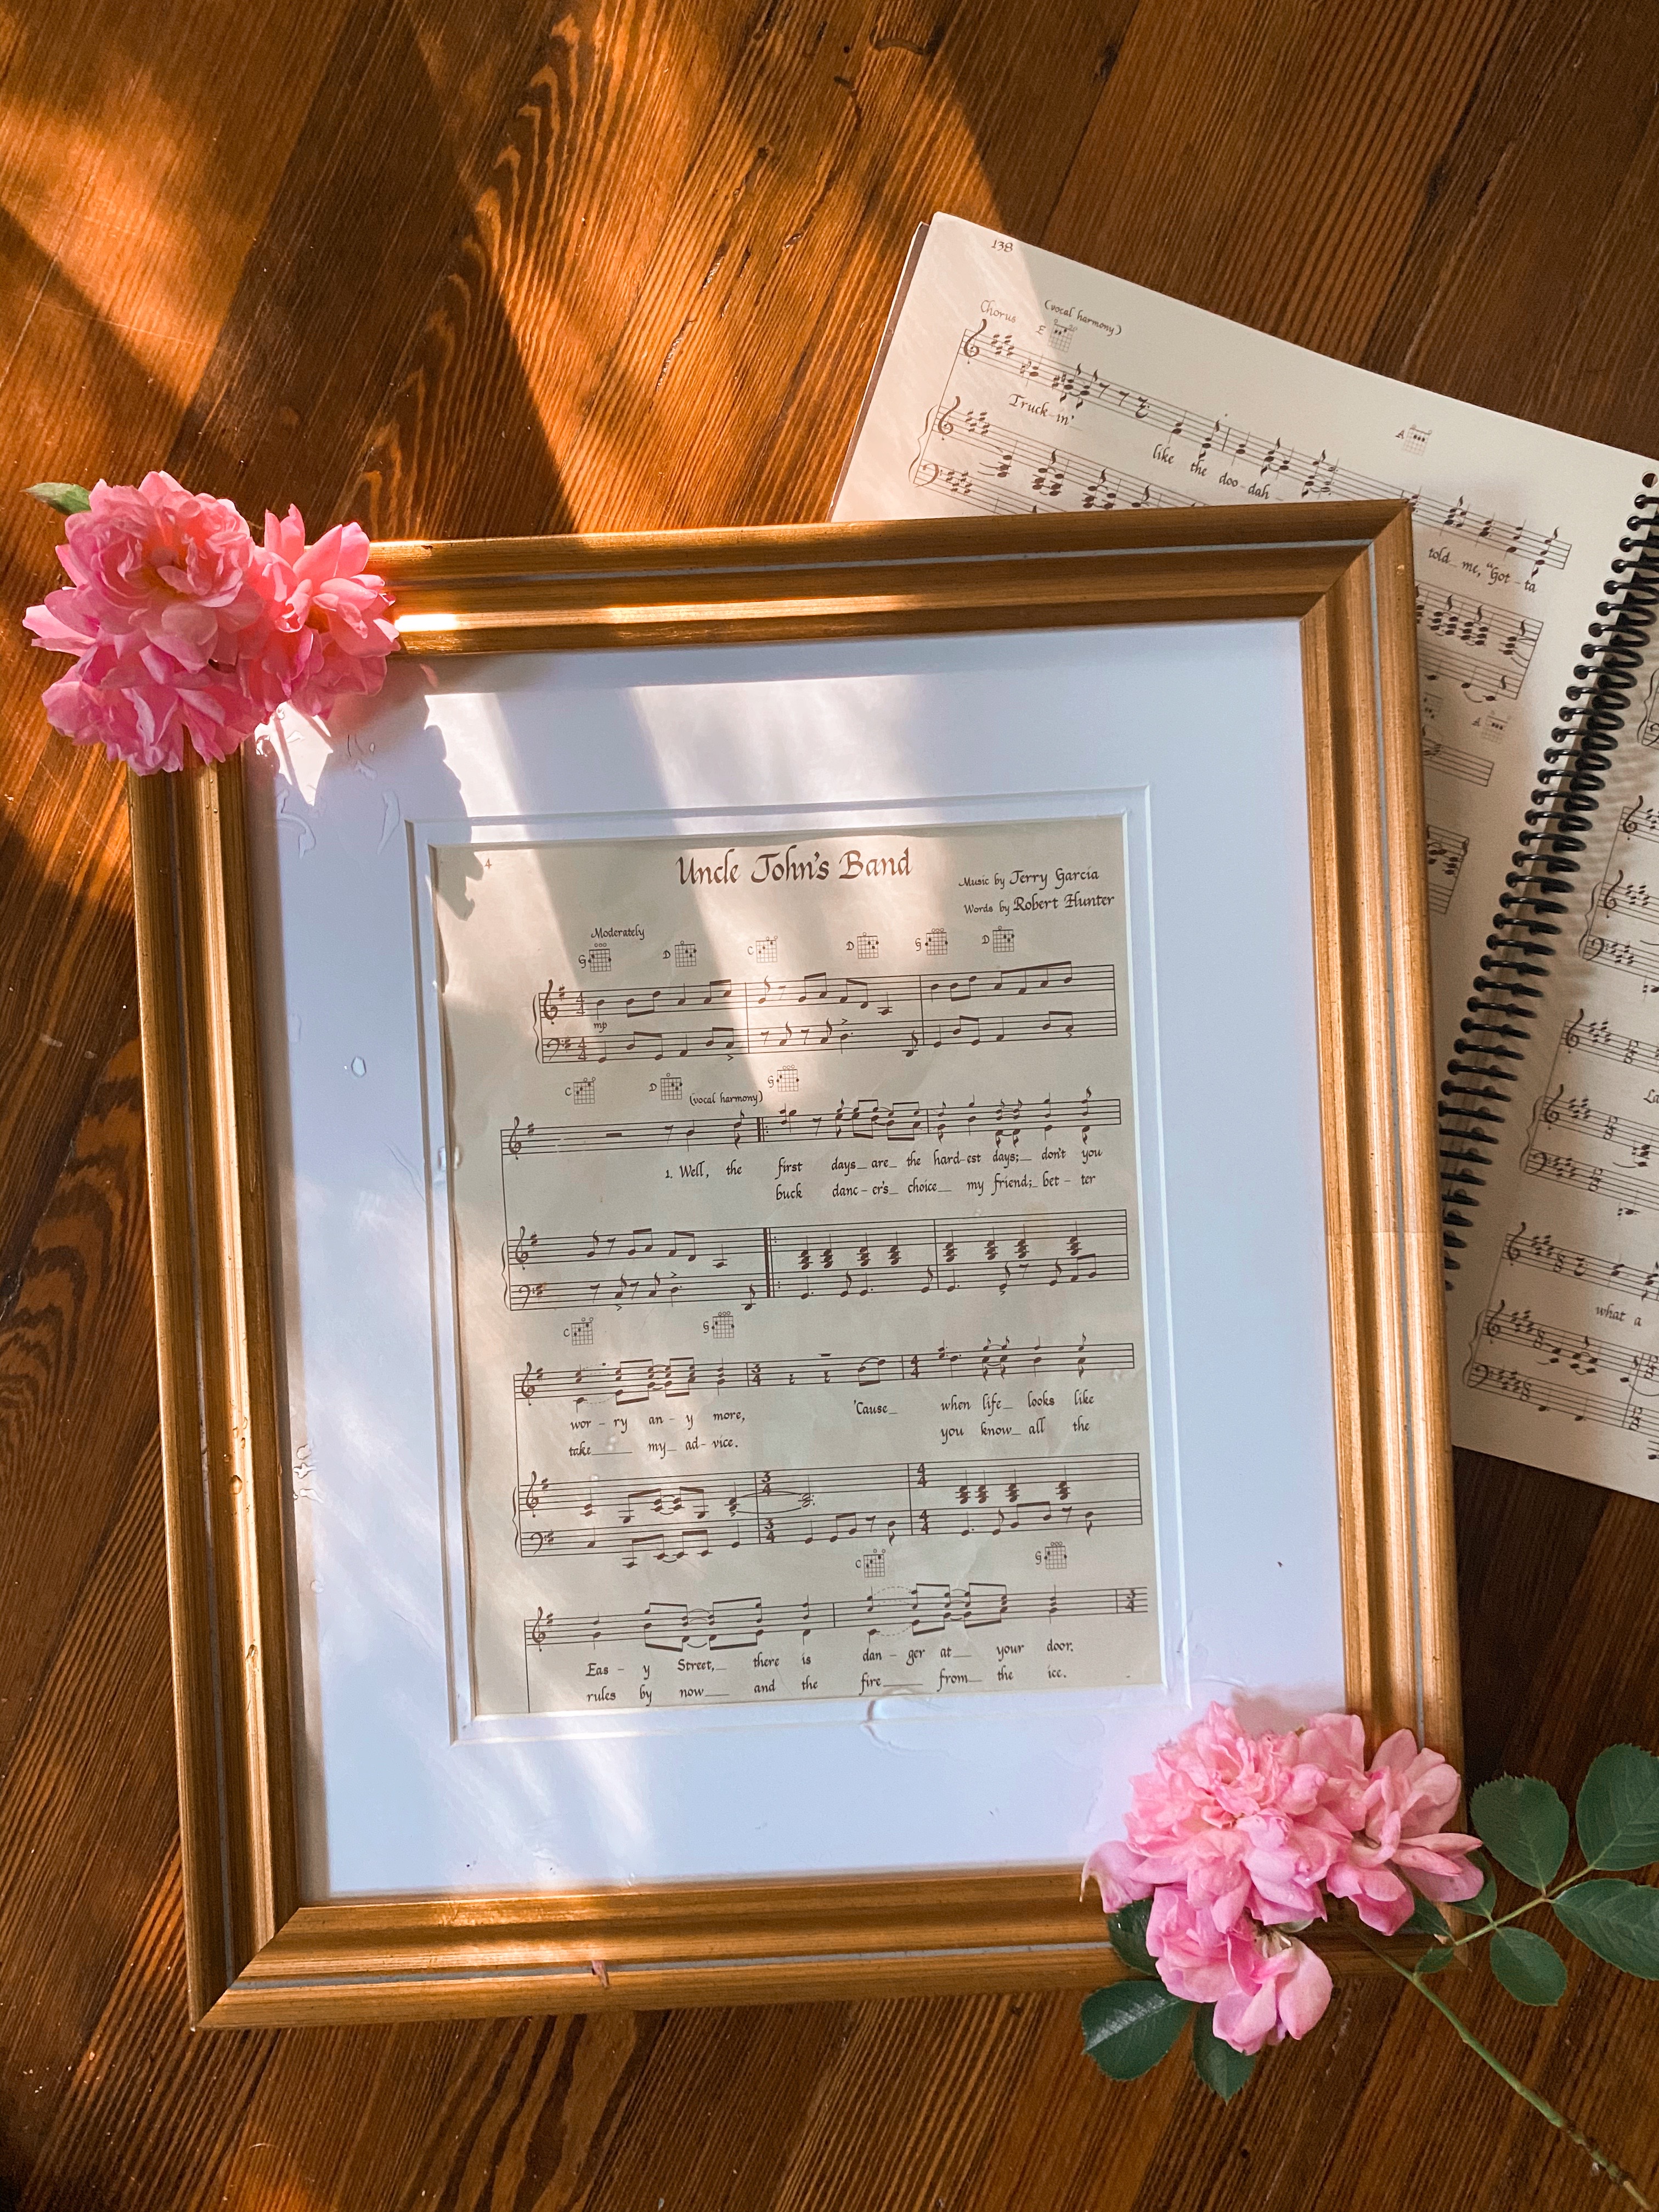 138
Chorus (vocal harmony)
E
A
Truck-in' like the doo-dah
told me, "Got-ta
A
La
what a
4
Uncle John's Band
Music by Jerry Garcia
Words by Robert Hunter
Moderately
G D C D G D
mp
C D (vocal harmony) G
1. Well, the first days are the hard-est days; don't you
buck danc-er's choice my friend; bet-ter
C G
wor-ry an-y more, 'Cause when life looks like
take my ad-vice. you know all the
C G
Eas-y Street, there is dan-ger at your door.
rules by now and the fire from the ice.